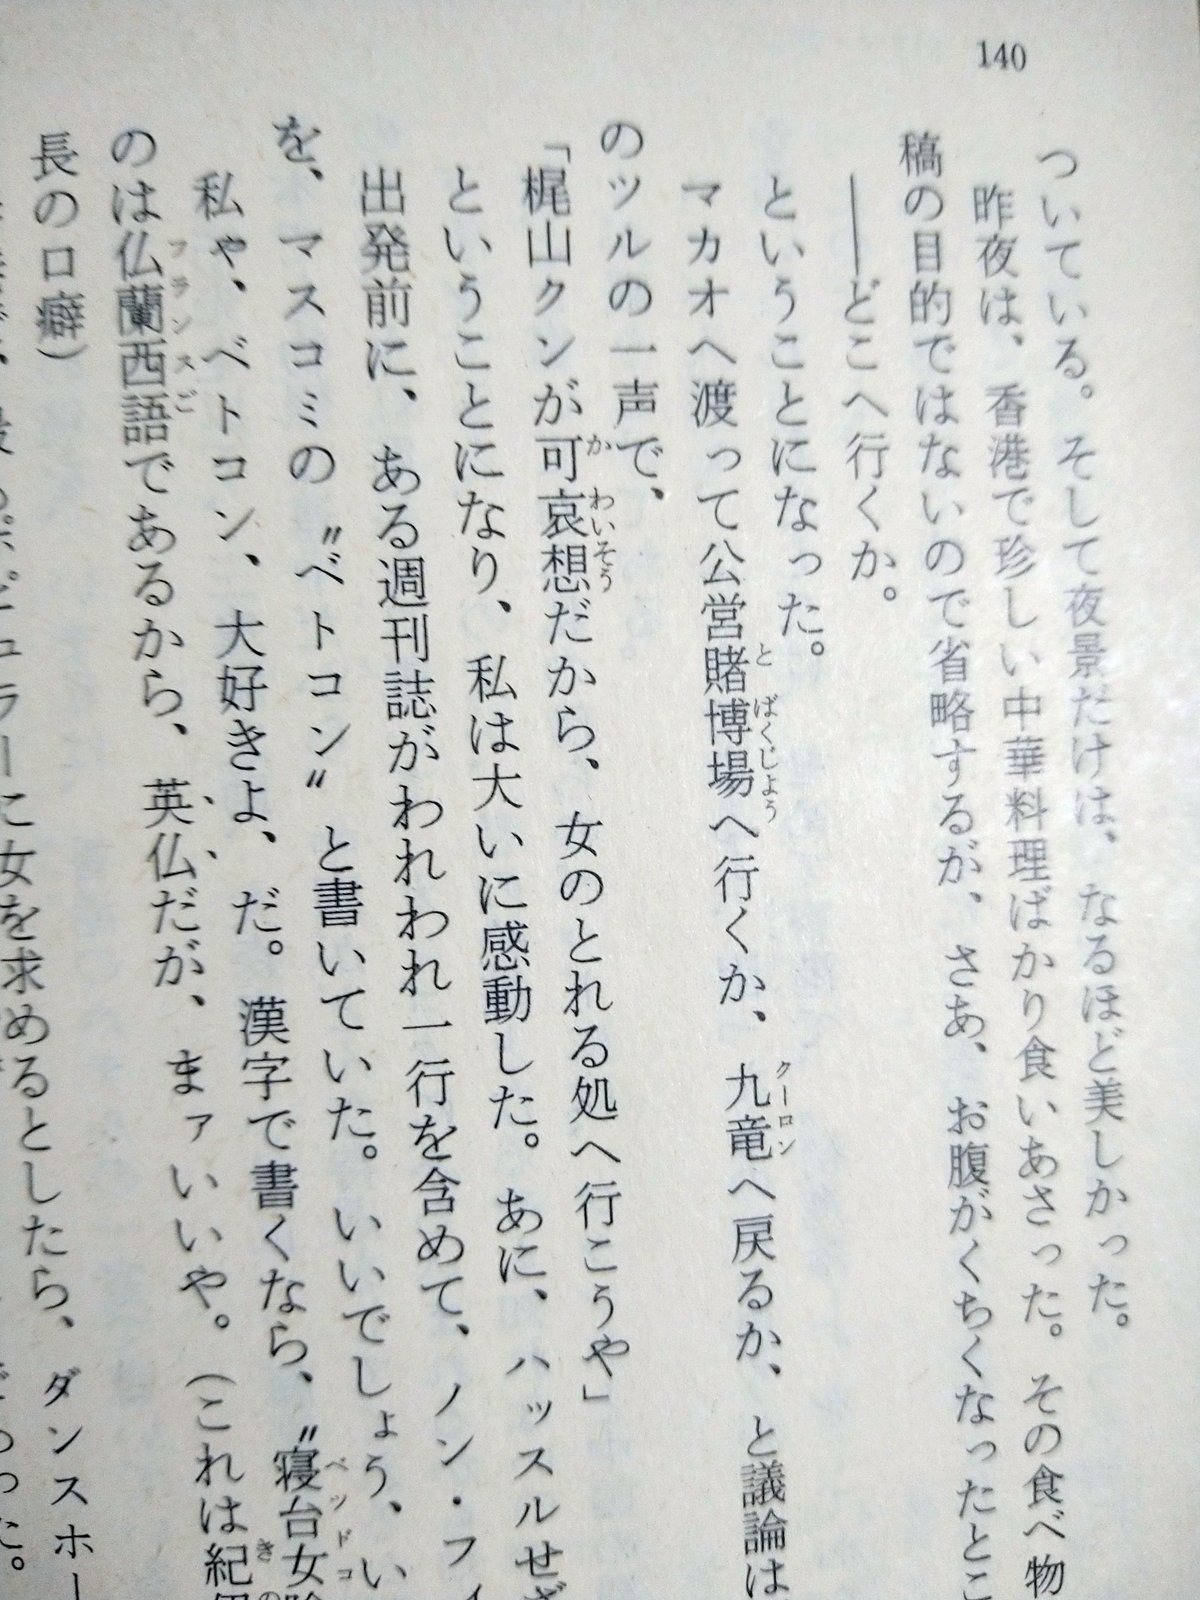 140
ついている。そして夜景だけは、なるほど美しかった。
昨夜は、香港で珍しい中華料理ばかり食いあさった。その食べ物
稿の目的ではないので省略するが、さあ、お腹がくちくなったとこ
――どこへ行くか。
ということになった。
マカオへ渡って公営賭博場へ行くか、九竜へ戻るか、と議論は
のツルの一声で、
「梶山クンが可哀想だから、女のとれる処へ行こうや」
ということになり、私は大いに感動した。あに、ハッスルせざ
出発前に、ある週刊誌がわれわれ一行を含めて、ノン・フィ
を、マスコミの〝ベトコン〟と書いていた。いいでしょう、い
私ゃ、ベトコン、大好きよ、だ。漢字で書くなら、〝寝台女
のは仏蘭西語であるから、英仏だが、まァいいや。(これは紀
長の口癖)
に女を求めるとしたら、ダンスホー